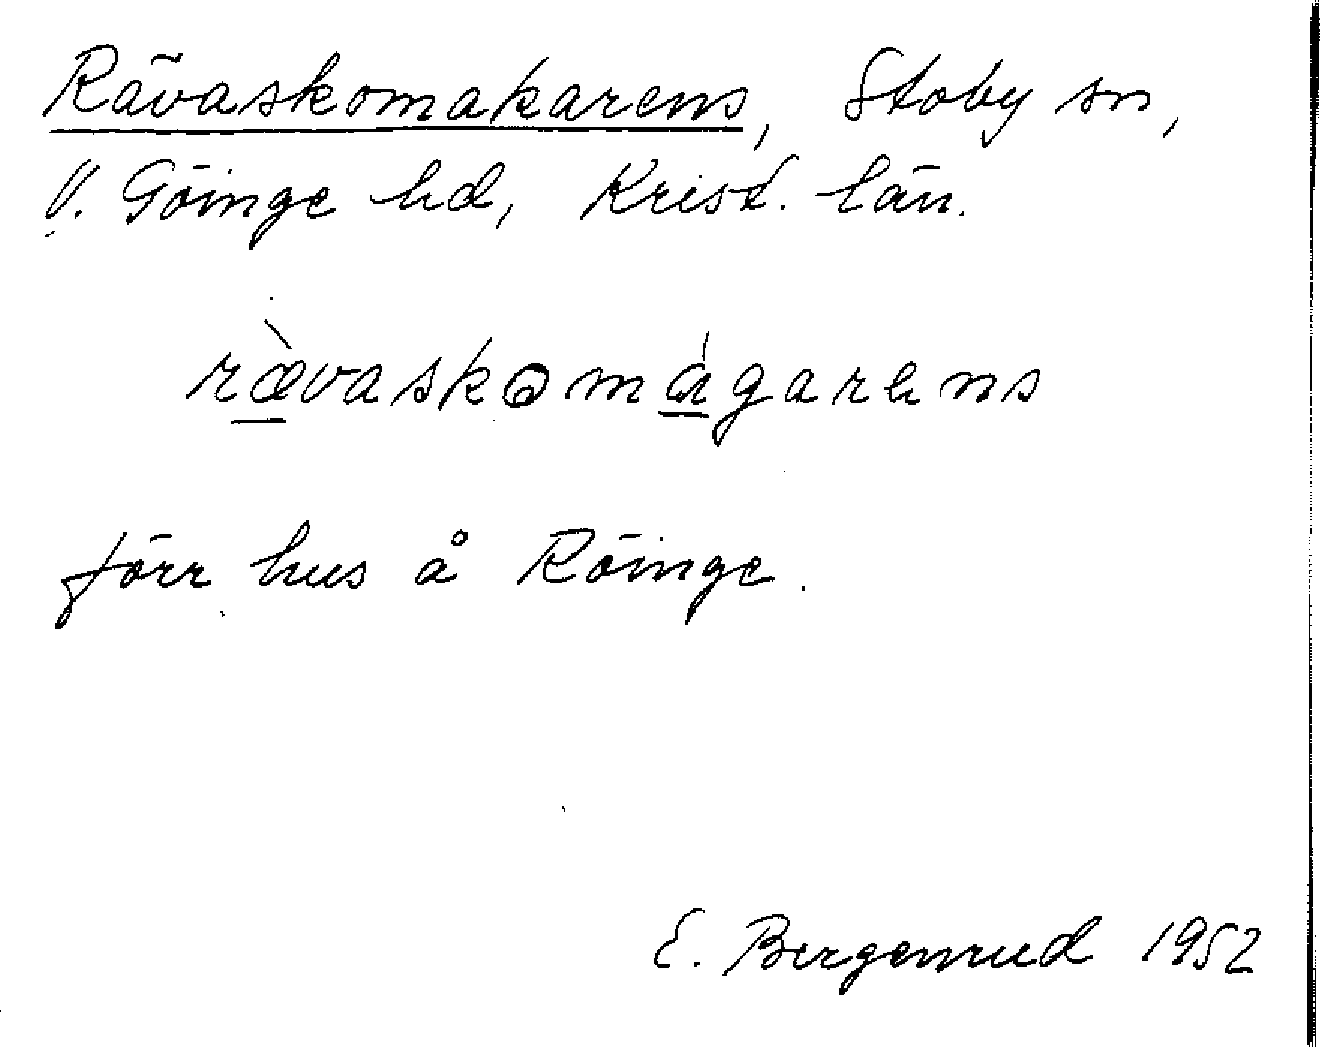 Rävaskomakarens, Stoby sn,
V. Göinge hd, Krist. län.
rævaskomágarens
förr hus å Röinge.
E. Bergenrud 1952